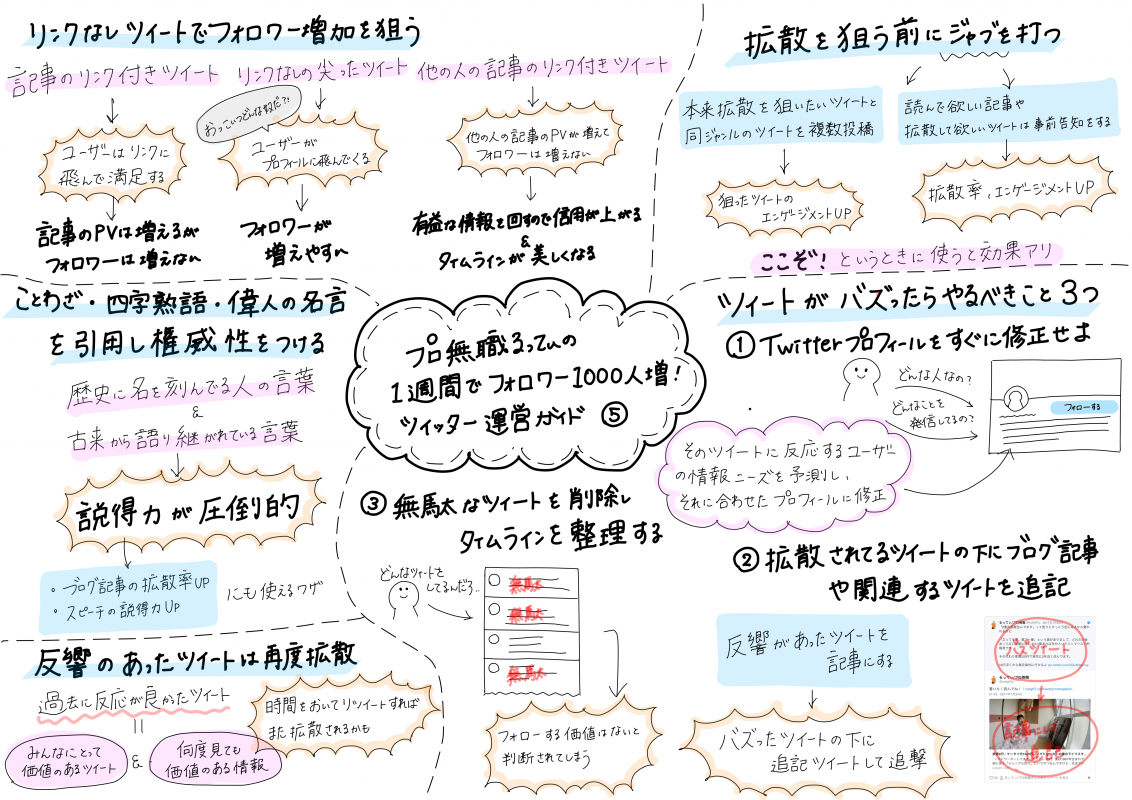 リンクなしツイートでフォロワー増加を狙う
記事のリンク付きツイート
リンクなしの尖ったツイート
他の人の記事のリンク付きツイート
おっこいつどんな奴だ?!
ユーザーはリンクに
飛んで満足する
ユーザーが
プロフィールに飛んでくる
他の人の記事のPVが増えて
フォロワーは増えない
記事のPVは増えるが
フォロワーは増えない
フォロワーが
増えやすい
有益な情報を回すので信用が上がる
&
タイムラインが美しくなる
拡散を狙う前にジャブを打つ
本来拡散を狙いたいツイートと
同ジャンルのツイートを複数投稿
読んで欲しい記事や
拡散して欲しいツイートは事前告知をする
狙ったツイートの
エンゲージメントUP
拡散率、エンゲージメントUP
ここぞ!というときに使うと効果アリ
ことわざ・四字熟語・偉人の名言
を引用し権威性をつける
歴史に名を刻んでる人の言葉
&
古来から語り継がれている言葉
説得力が圧倒的
・ブログ記事の拡散率UP
・スピーチの説得力UP
にも使えるワザ
プロ無職るってぃの
1週間でフォロワー1000人増!
ツイッター運営ガイド ⑤
ツイートがバズったらやるべきこと3つ
① Twitterプロフィールをすぐに修正せよ
どんな人なの?
どんなことを
発信してるの?
フォローする
そのツイートに反応するユーザー
の情報ニーズを予測し、
それに合わせたプロフィールに修正
② 拡散されてるツイートの下にブログ記事
や関連するツイートを追記
反響があったツイートを
記事にする
バズったツイートの下に
追記ツイートして追撃
バズツイート
記事にし
追記
③ 無駄なツイートを削除し
タイムラインを整理する
どんなツイートを
してるんだろ..
無駄
無駄
無駄
フォローする価値はないと
判断されてしまう
反響のあったツイートは再度拡散
過去に反応が良かったツイート
みんなにとって
価値のあるツイート
&
何度見ても
価値のある情報
時間をおいてリツイートすれば
また拡散されるかも